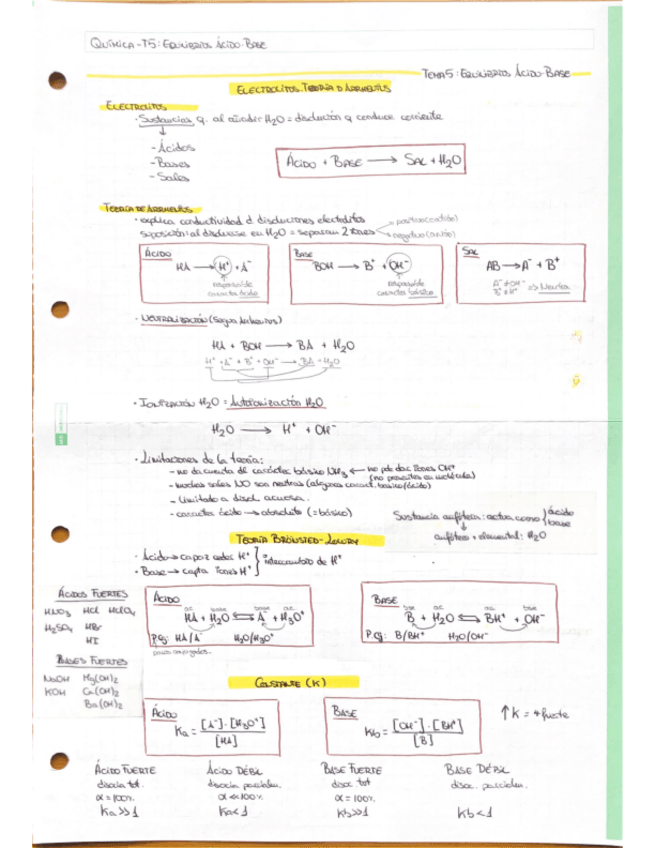 QUÍMICA-T5: EQUILIBRIOS ÁCIDO-BASE
TEMA 5: EQUILIBRIOS ÁCIDO-BASE
ELECTROLITOS. TEORÍA D ARRHENIUS
ELECTROLITOS
· Sustancias q. al añadir H₂O = disolución q conduce corriente
↓
- Ácidos
- Bases
- Sales
ÁCIDO + BASE ⟶ SAL + H₂O
TEORÍA DE ARRHENIUS
· explica conductividad d disoluciones electrolitos
suposición: al disolverse en H₂O = separan 2 iones
positivo (catión)
negativo (anión)
ÁCIDO
HA ⟶ H⁺ + A⁻
responsable
carácter ácido
BASE
BOH ⟶ B⁺ + OH⁻
responsable
carácter básico
SAL
AB ⟶ A⁻ + B⁺
=> Neutra
· NEUTRALIZACIÓN (según Arrhenius)
HA + BOH ⟶ BA + H₂O
H⁺ + A⁻ + B⁺ + OH⁻ ⟶ BA + H₂O
· IONIZACIÓN H₂O = Autoionización H₂O
H₂O ⟶ H⁺ + OH⁻
· Limitaciones de la teoría:
- no da cuenta del carácter básico NH₃ ← no pde dar iones OH⁻
(no presentes en molécula)
- muchas sales NO son neutras (algunas caract. básico/ácido)
- Limitado a disol. acuosa.
- carácter ácido → absoluto (= básico)
Sustancia anfótera: actúa como { ácido
base
↓
anfótera + elemental: H₂O
TEORÍA BRÖNSTED-LOWRY
· Ácido → capaz ceder H⁺
· Base → capta iones H⁺
} intercambio de H⁺
ÁCIDOS FUERTES
HNO₃ HCl HClO₄
H₂SO₄ HBr
HI
BASES FUERTES
NaOH Mg(OH)₂
KOH Ca(OH)₂
Ba(OH)₂
ÁCIDO
ac. base base ac.
HA + H₂O ⇌ A⁻ + H₃O⁺
P.Cj: HA/A⁻ H₂O/H₃O⁺
pares conjugados.
BASE
base ac. ac. base
B + H₂O ⇌ BH⁺ + OH⁻
P.Cj: B/BH⁺ H₂O/OH⁻
CONSTANTE (K)
ÁCIDO
Ka = [A⁻]·[H₃O⁺] / [HA]
BASE
Kb = [OH⁻]·[BH⁺] / [B]
↑K = + fuerte
ÁCIDO FUERTE ÁCIDO DÉBIL BASE FUERTE BASE DÉBIL
disocia tot. disocia parcialm. disoc. tot disoc. parcialm.
α = 100%. α << 100%. α = 100%.
Ka >> 1 Ka < 1 Kb >> 1 Kb < 1